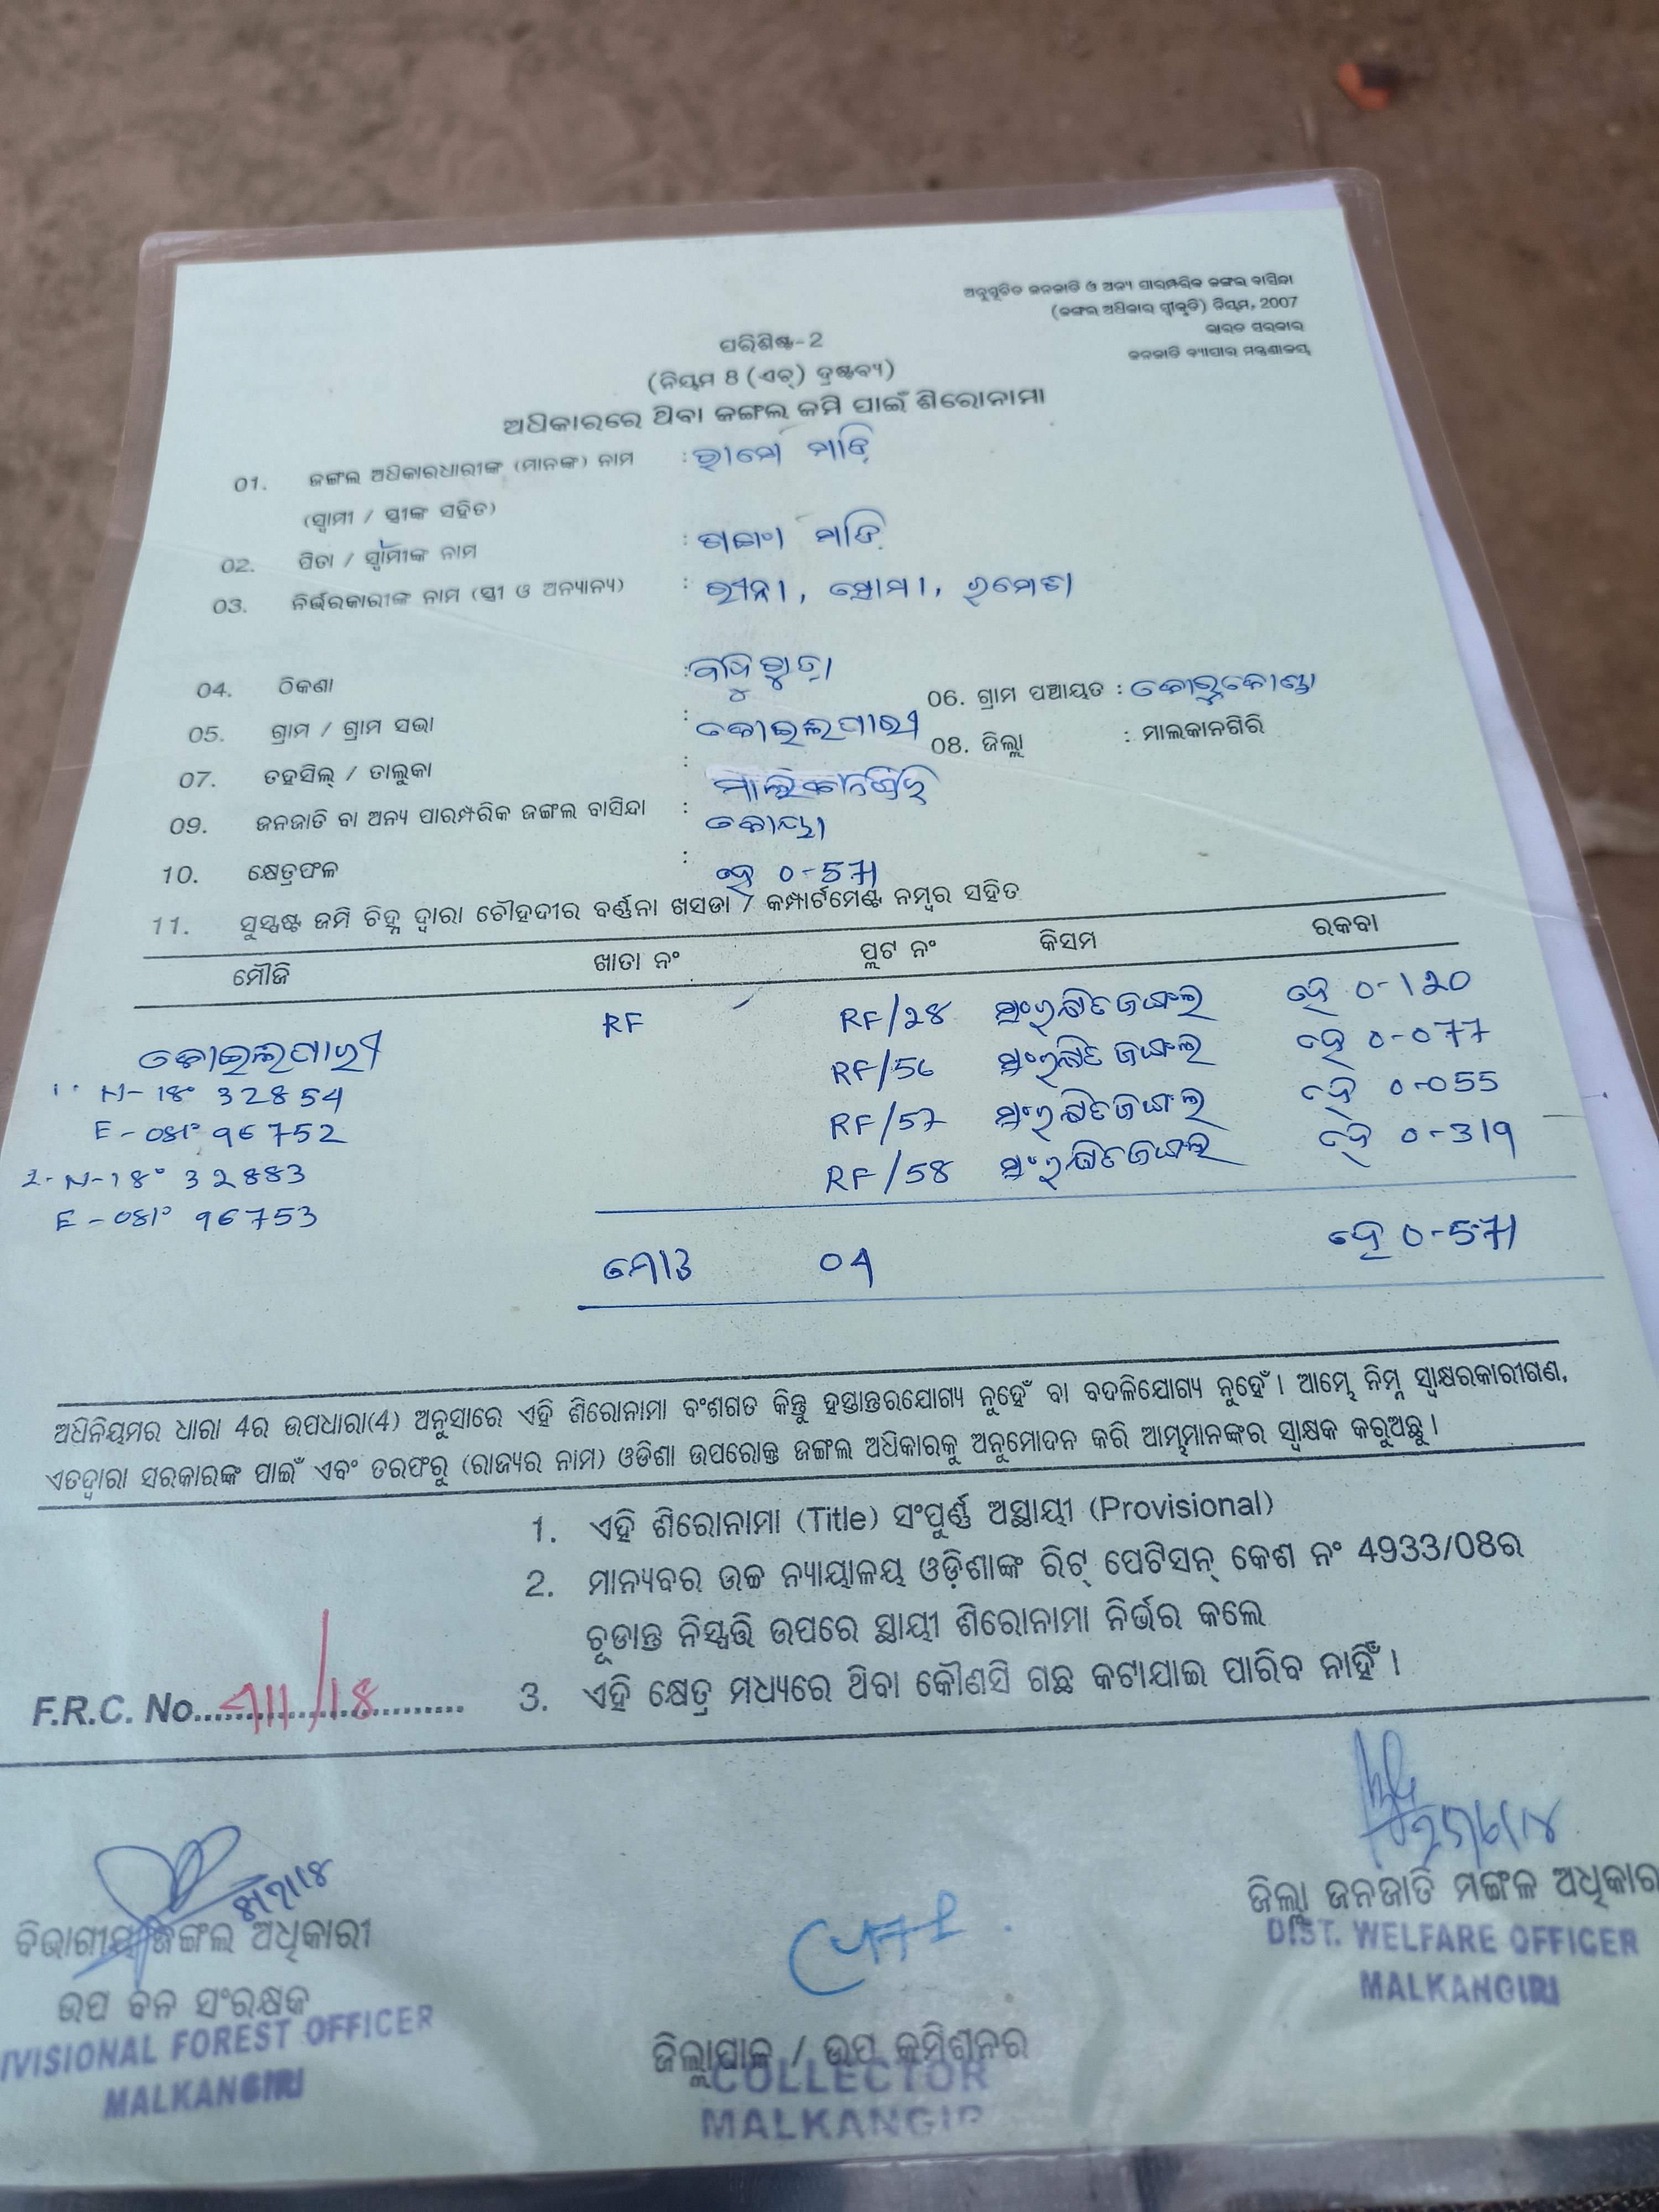 ଅନୁସୂଚିତ ଜନଜାତି ଓ ଅନ୍ୟ ପାରମ୍ପରିକ ଜଙ୍ଗଲ ବାସିନ୍ଦା
(ଜଙ୍ଗଲ ଅଧିକାର ସ୍ୱୀକୃତି) ନିୟମ, 2007
ଭାରତ ସରକାର
ଜନଜାତି ବ୍ୟାପାର ମନ୍ତ୍ରଣାଳୟ
ପରିଶିଷ୍ଟ-2
(ନିୟମ 8 (ଏଚ୍) ଦ୍ରଷ୍ଟବ୍ୟ)
ଅଧିକାରରେ ଥିବା ଜଙ୍ଗଲ ଜମି ପାଇଁ ଶିରୋନାମା
01. ଜଙ୍ଗଲ ଅଧିକାରଧାରୀଙ୍କ (ମାନଙ୍କ) ନାମ :
(ସ୍ୱାମୀ / ସ୍ତ୍ରୀଙ୍କ ସହିତ)
02. ପିତା / ସ୍ୱାମୀଙ୍କ ନାମ :
03. ନିର୍ଭରକାରୀଙ୍କ ନାମ (ସ୍ତ୍ରୀ ଓ ଅନ୍ୟାନ୍ୟ) :
04. ଠିକଣା :
05. ଗ୍ରାମ / ଗ୍ରାମ ସଭା : କୋଇଲପାରୀ 06. ଗ୍ରାମ ପଞ୍ଚାୟତ : କୋରୁକୋଣ୍ଡା
07. ତହସିଲ୍ / ତାଲୁକା : ମାଲକାନଗିରି 08. ଜିଲ୍ଲା : ମାଲକାନଗିରି
09. ଜନଜାତି ବା ଅନ୍ୟ ପାରମ୍ପରିକ ଜଙ୍ଗଲ ବାସିନ୍ଦା : କୋୟା
10. କ୍ଷେତ୍ରଫଳ : ହେ 0-571
11. ସୁସ୍ପଷ୍ଟ ଜମି ଚିହ୍ନ ଦ୍ୱାରା ଚୌହଦୀର ବର୍ଣ୍ଣନା ଖସଡା / କମ୍ପାର୍ଟମେଣ୍ଟ ନମ୍ବର ସହିତ
ମୌଜି ଖାତା ନଂ ପ୍ଲଟ ନଂ କିସମ ରକବା
କୋଇଲପାରୀ RF RF/28 ସଂରକ୍ଷିତ ଜଙ୍ଗଲ ହେ 0-120
1. N-18° 32854 RF/56 ସଂରକ୍ଷିତ ଜଙ୍ଗଲ ହେ 0-077
E-081° 96752 RF/57 ସଂରକ୍ଷିତ ଜଙ୍ଗଲ ହେ 0-055
2. N-18° 32883 RF/58 ସଂରକ୍ଷିତ ଜଙ୍ଗଲ ହେ 0-319
E-081° 96753
ମୋଟ 04 ହେ 0-571
ଅଧିନିୟମର ଧାରା 4ର ଉପଧାରା(4) ଅନୁସାରେ ଏହି ଶିରୋନାମା ବଂଶଗତ କିନ୍ତୁ ହସ୍ତାନ୍ତରଯୋଗ୍ୟ ନୁହେଁ ବା ବଦଳିଯୋଗ୍ୟ ନୁହେଁ । ଆମ୍ଭେ ନିମ୍ନ ସ୍ୱାକ୍ଷରକାରୀଗଣ,
ଏତଦ୍ୱାରା ସରକାରଙ୍କ ପାଇଁ ଏବଂ ତରଫରୁ (ରାଜ୍ୟର ନାମ) ଓଡିଶା ଉପରୋକ୍ତ ଜଙ୍ଗଲ ଅଧିକାରକୁ ଅନୁମୋଦନ କରି ଆମ୍ଭମାନଙ୍କର ସ୍ୱାକ୍ଷକ କରୁଅଛୁ ।
1. ଏହି ଶିରୋନାମା (Title) ସଂପୂର୍ଣ୍ଣ ଅସ୍ଥାୟୀ (Provisional)
2. ମାନ୍ୟବର ଉଚ୍ଚ ନ୍ୟାୟାଳୟ ଓଡ଼ିଶାଙ୍କ ରିଟ୍ ପେଟିସନ୍ କେଶ ନଂ 4933/08ର
ଚୂଡାନ୍ତ ନିସ୍ପତ୍ତି ଉପରେ ସ୍ଥାୟୀ ଶିରୋନାମା ନିର୍ଭର କଲେ
3. ଏହି କ୍ଷେତ୍ର ମଧ୍ୟରେ ଥିବା କୌଣସି ଗଛ କଟାଯାଇ ପାରିବ ନାହିଁ ।
F.R.C. No. 411/18
ବିଭାଗୀୟ ଜଙ୍ଗଲ ଅଧିକାରୀ
ଉପ ବନ ସଂରକ୍ଷକ
IVISIONAL FOREST OFFICER
MALKANGIRI
ଜିଲ୍ଲାପାଳ / ଉପ କମିଶନର
COLLECTOR
MALKANGIR
ଜିଲ୍ଲା ଜନଜାତି ମଙ୍ଗଳ ଅଧିକାର
DIST. WELFARE OFFICER
MALKANGIRI